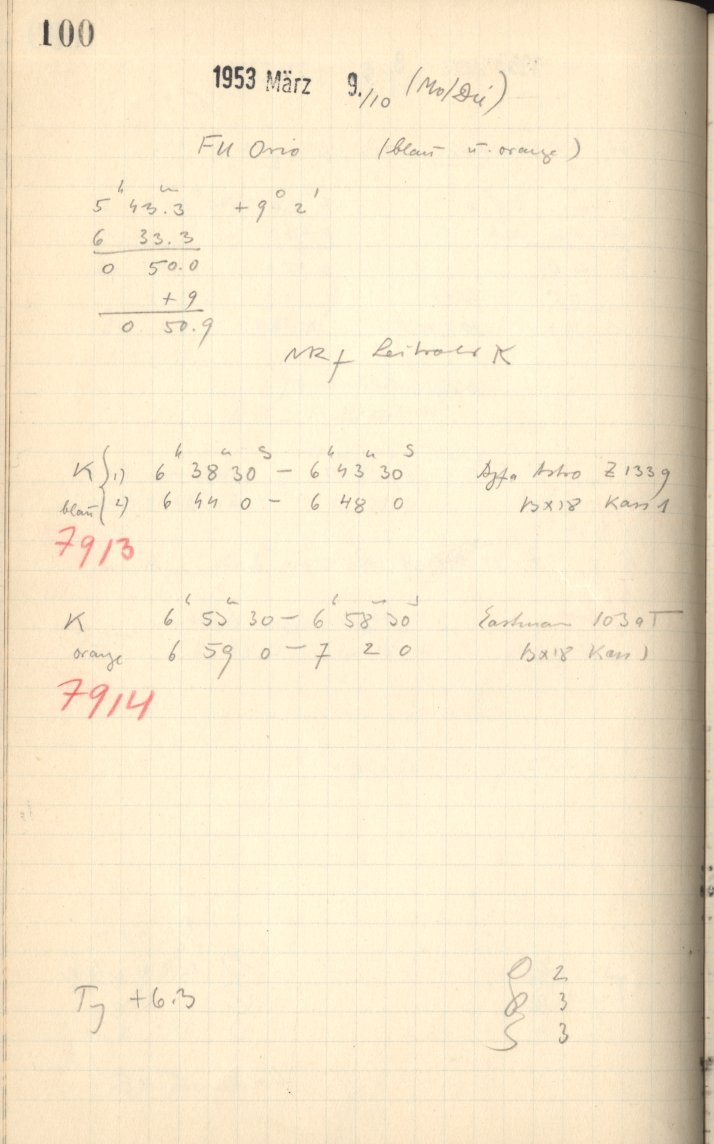 100
1953 März 9./10 (Mo/Die)
FU Orio (blau u. orange)
5h 43m.3 + 9° 2'
6 33.3
0 50.0
+ 9
0 50.9
K
K { 1) 6h 38m 30s – 6h 43m 30s Agfa Astro Z 1339
blau { 2) 6 44 0 – 6 48 0 13x18 Kass 1
7913
K 6h 53m 30 – 6h 58m 30s Eastman 103aT
orange 6 59 0 – 7 2 0 13x18 Kass 1
7914
T +6.3
2
3
3